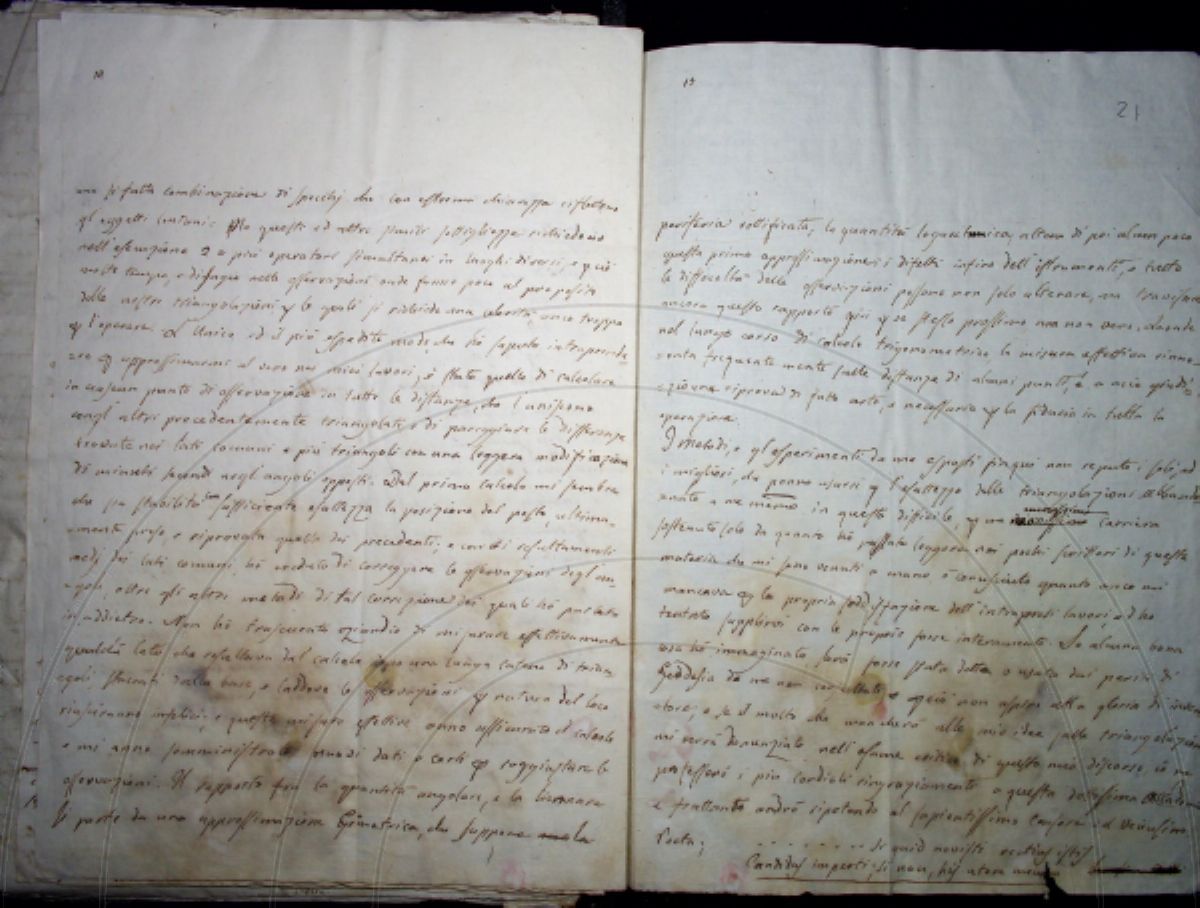 18
una sì fatta combinazione di specchj che con estrema chiarezza riflettono
gl'oggetti lontani: Ma questi ed altri simili sottigliezze richiedono
nell'esecuzione 2 o più operatori simultanei in luoghi diversi, e più
molto tempo, e disagio nelle osservazioni onde fanno poco al proposito
delle nostre triangolazioni p le quali si richiede una celerità anco troppa
p l'operare. L'Unico ed il più espedito modo, che hò saputo intraprende
re p approssimarmi al vero nei miei lavori, è stato quello di calcolare
in ciascun punto di osservazione tutte le distanze, che l'uniscono
cogl'altri precedentemente triangolati, e di pareggiare le differenze
trovate nei lati comuni a più triangoli con una leggera modificazione
di minuti secondi negl'angoli opposti. Dal primo calcolo mi sembra
che sia stabilita con sufficiente esattezza la posizione del posto ultima-
mente preso, e riprovata quella dei precedenti, e con i resultamenti
medj dei lati comuni hò creduto di correggere le osservazioni degl'an
goli, oltre gli altri metodi di tal correzione dei quali hò parlato
in addietro. Non hò trascurato eziandio di misurare effettivamente
qualche lato che resultava dal calcolo dopo una lunga catena di trian
goli staccati dalla base, e laddove le osservazioni p natura del loco
riuscivano infelici, e queste misure effettive anno assicurato il calcolo
e mi anno somministrato nuovi dati e certi p raggiustare le
osservazioni. Il rapporto fra la quantità angolare, e la lineare
si parte da una approssimazione Geometrica, che suppone la
19
21
periferia rettificata, la quantità logaritmica, altera di poi alcun poco
questa prima approssimazione; i difetti infine dell'istrumento, e tutte
le difficoltà delle osservazioni possono non solo alterare, ma travisare
ancora questo rapporto già p se stesso prossimo ma non vero, laonde
nel lungo corso di calcolo trigonometrico la misura effettiva rinno-
vata frequentemente sulle distanze di alcuni punti, è a mio giudi-
zio una riprova di fatto certo, e necessaria p la fiducia in tutta la
operazione.
I Metodi, e gl'esperimenti da me esposti finquì non reputo i soli, ed
i migliori, che penno usarsi p l'esattezza delle triangolazioni. Abbando
nato a me in questa difficile, p me carriera
sostenuto solo da quanto hò potuto leggere nei pochi scrittori di questa
materia che mi sono venuti a mano ò conosciuto quanto anco mi
mancava p la propria soddisfazione dell'intrapresi lavori, ed ho
tentato supplirvi con le proprie forze interamente. Se alcuna buona
cosa hò immaginato sarà forse stata detta o usata dai periti di
Geodesia da me non consultati e perciò non aspiro alla gloria di inven
tore, e se il molto che mancherà alle mie idee sulle triangolazioni
mi verrà denunziato nell'esame critico di questo mio discorso, io ne
professerò i più cordiali ringraziamenti a questa dottissima
e frattanto andrò ripetendo al sapientissimo Censore il Venusino
Poeta;
. . . . . . . . Si quid novisti rectius istis
Candidus imperti; si non, his utere mecum